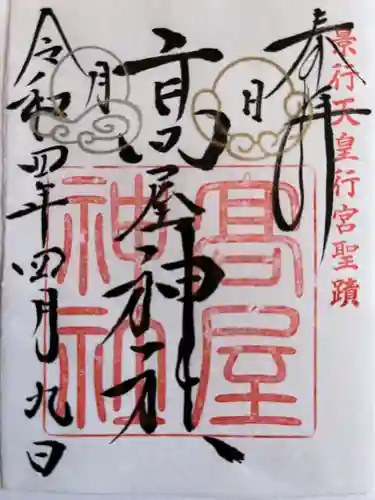 景行天皇行宮聖蹟
奉拝
日
月
高屋神社
髙屋
神社
令和四年四月九日